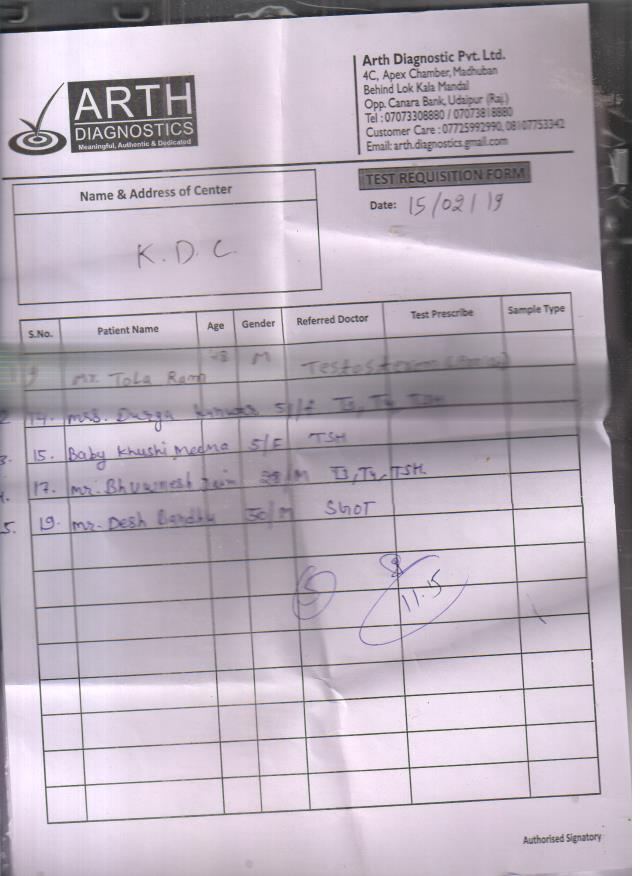 ARTH
DIAGNOSTICS
Meaningful, Authentic & Dedicated
Arth Diagnostic Pvt. Ltd.
4C, Apex Chamber, Madhuban
Behind Lok Kala Mandal
Opp. Canara Bank, Udaipur (Raj.)
Tel : 07073308880 / 07073818880
Customer Care : 07725992990, 08107753342
Email: arth.diagnostics.gmail.com
TEST REQUISITION FORM
Date: 15/02/19
Name & Address of Center
K. D. C.
S.No. Patient Name Age Gender Referred Doctor Test Prescribe Sample Type
9 Mr. Tola Ram 48 M
2 14. Mrs. Durga T3, T4, TSH
3. 15. Baby Khushi Meena 5/F TSH
4. 17. Mr. Bhuwnesh Jain 28/M T3, T4, TSH.
5. 19. Mr. Desh Bandhu 50/M SGOT
5
11.15
Authorised Signatory